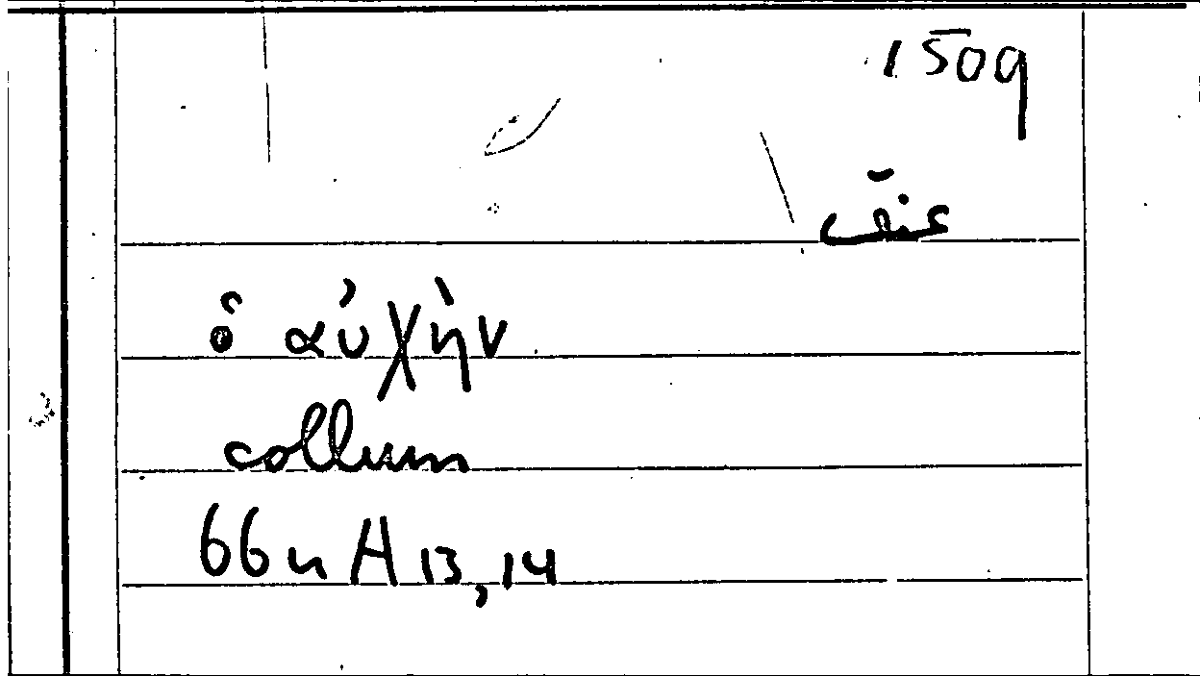 1509
عنق
ὁ αὐχὴν
collum
66 u A 13, 14